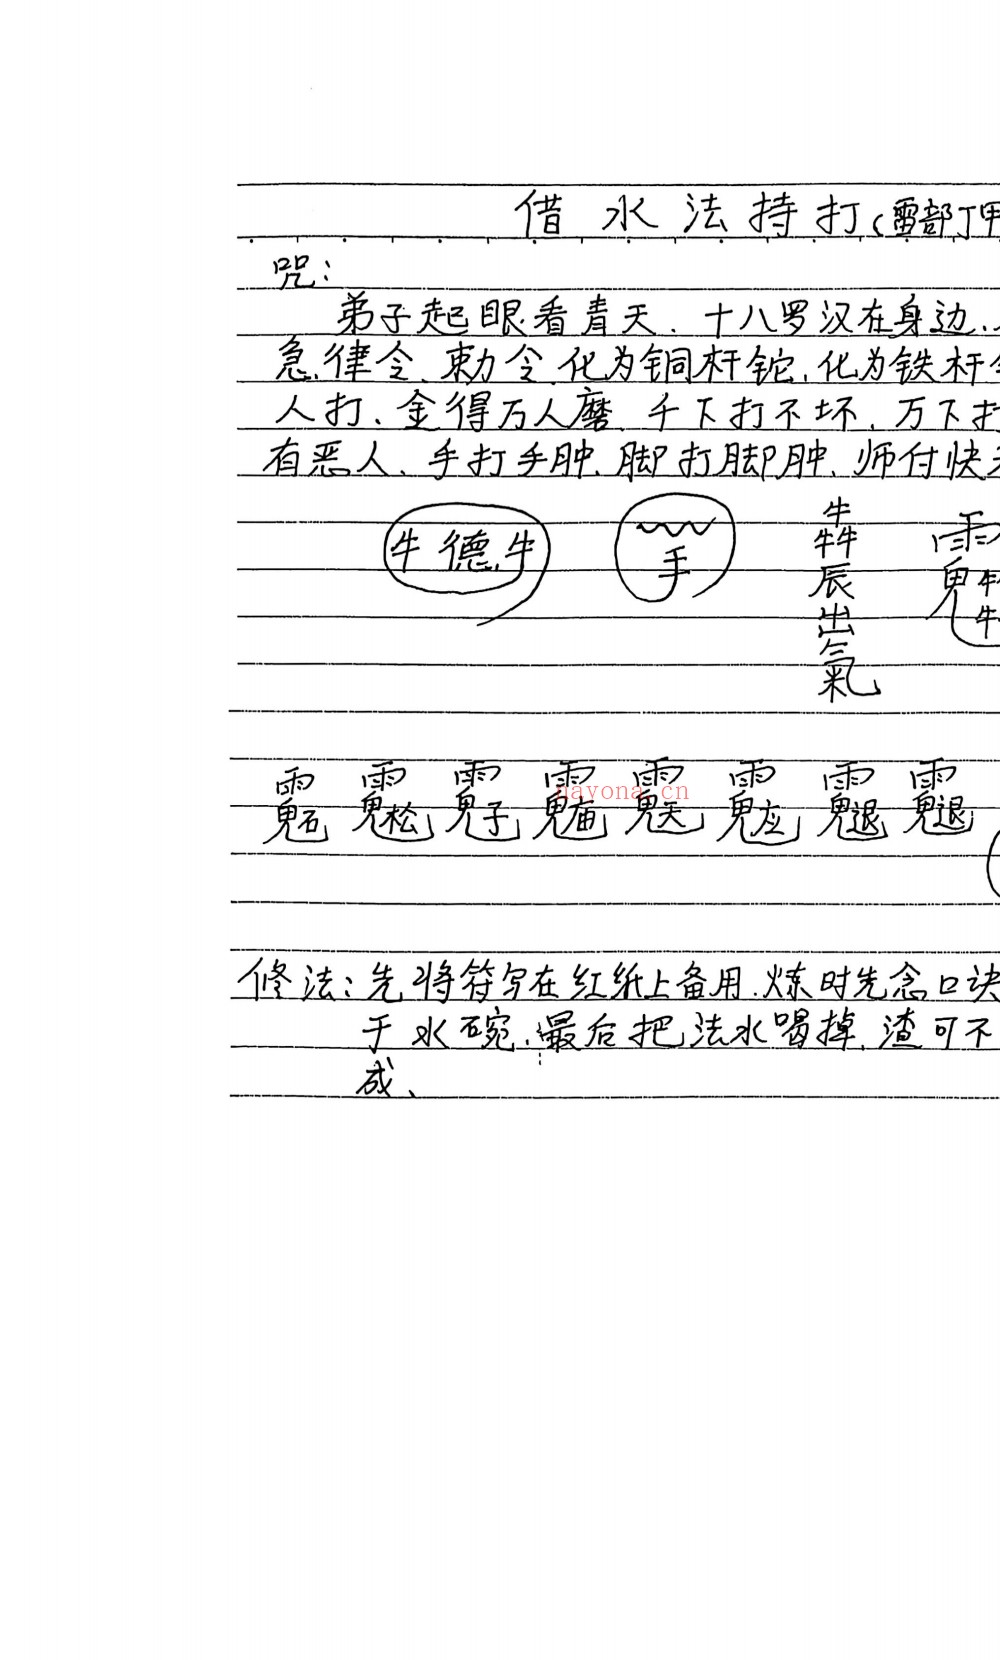 借水法持打(雷部丁甲
咒:
弟子起眼看青天.十八罗汉在身边..
急律令、勅令.化为铜杆铊,化为铁杆
人打、金得万人磨.千下打不坏.万下打
有恶人、手打手肿.脚打脚肿.师付快
牛德牛
手
牛
牛牛
辰
出
氣
nayona.cn
修法:先将符写在红纸上备用.炼时先念口诀
于水碗.最后把法水喝掉.渣可不
成、